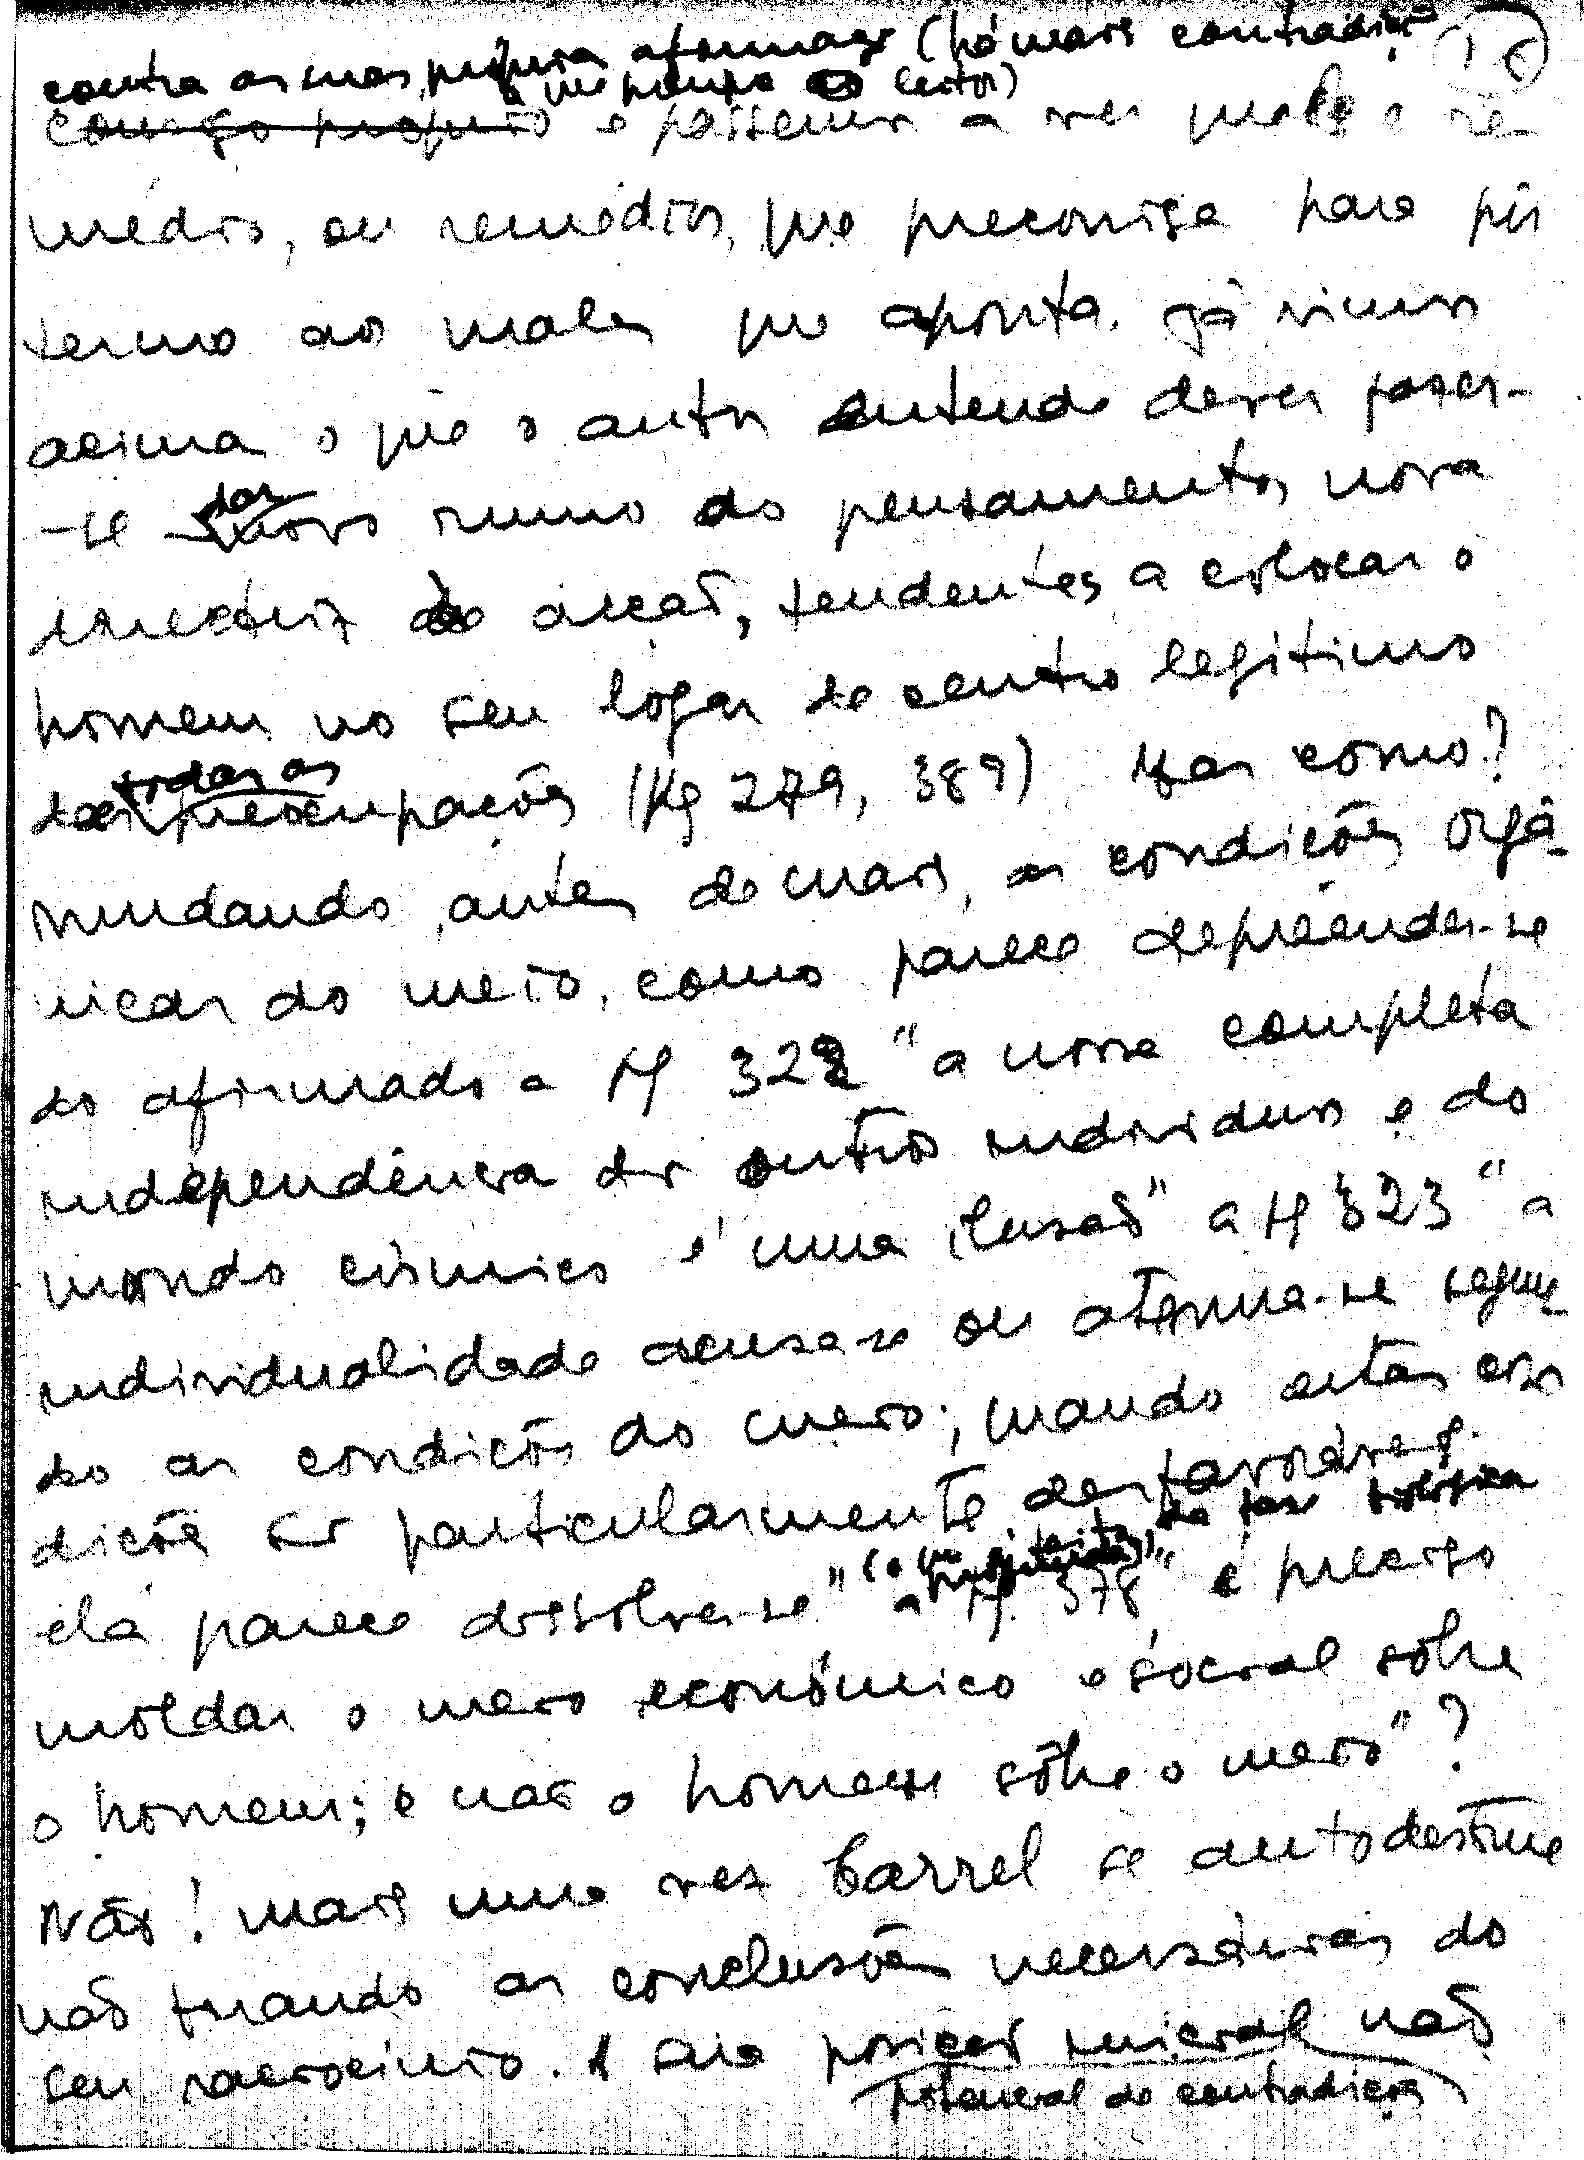 contra as suas próprias afirmações (há mais contradições
que poupo ao leitor)
comsigo próprio e passemos a ver qual o re-
médio, ou remédios, que preconisa para pôr
termo aos males que aponta. Já vimos
acima o que o autor entende dever fazer-
-se dar novo rumo ao pensamento, nova
directriz à acção, tendentes a colocar o
homem no seu logar de centro legítimo
de todas as preocupações (Pg 279, 389) Mas como?
mudando, antes de mais, as condições orgâ-
nicas do meio, como parece depreender-se
do afirmado a pg 322 "a nossa completa
independência dos outros indivíduos e do
mundo cósmico é uma ilusão" a pg 323 "a
individualidade acusa-se ou atenua-se segun
do as condições do meio; quando estas con
dições são particularmente desfavoráveis
ela parece dissolver-se" a pg. 378 " é preciso
moldar o meio económico e social sôbre
o homem; e não o homem sôbre o meio"?
Não! mais uma vez Carrel se autodestroe
não tirando as conclusões necessárias do
seu raciocínio. A sua posição inicial não
potencial de contradições